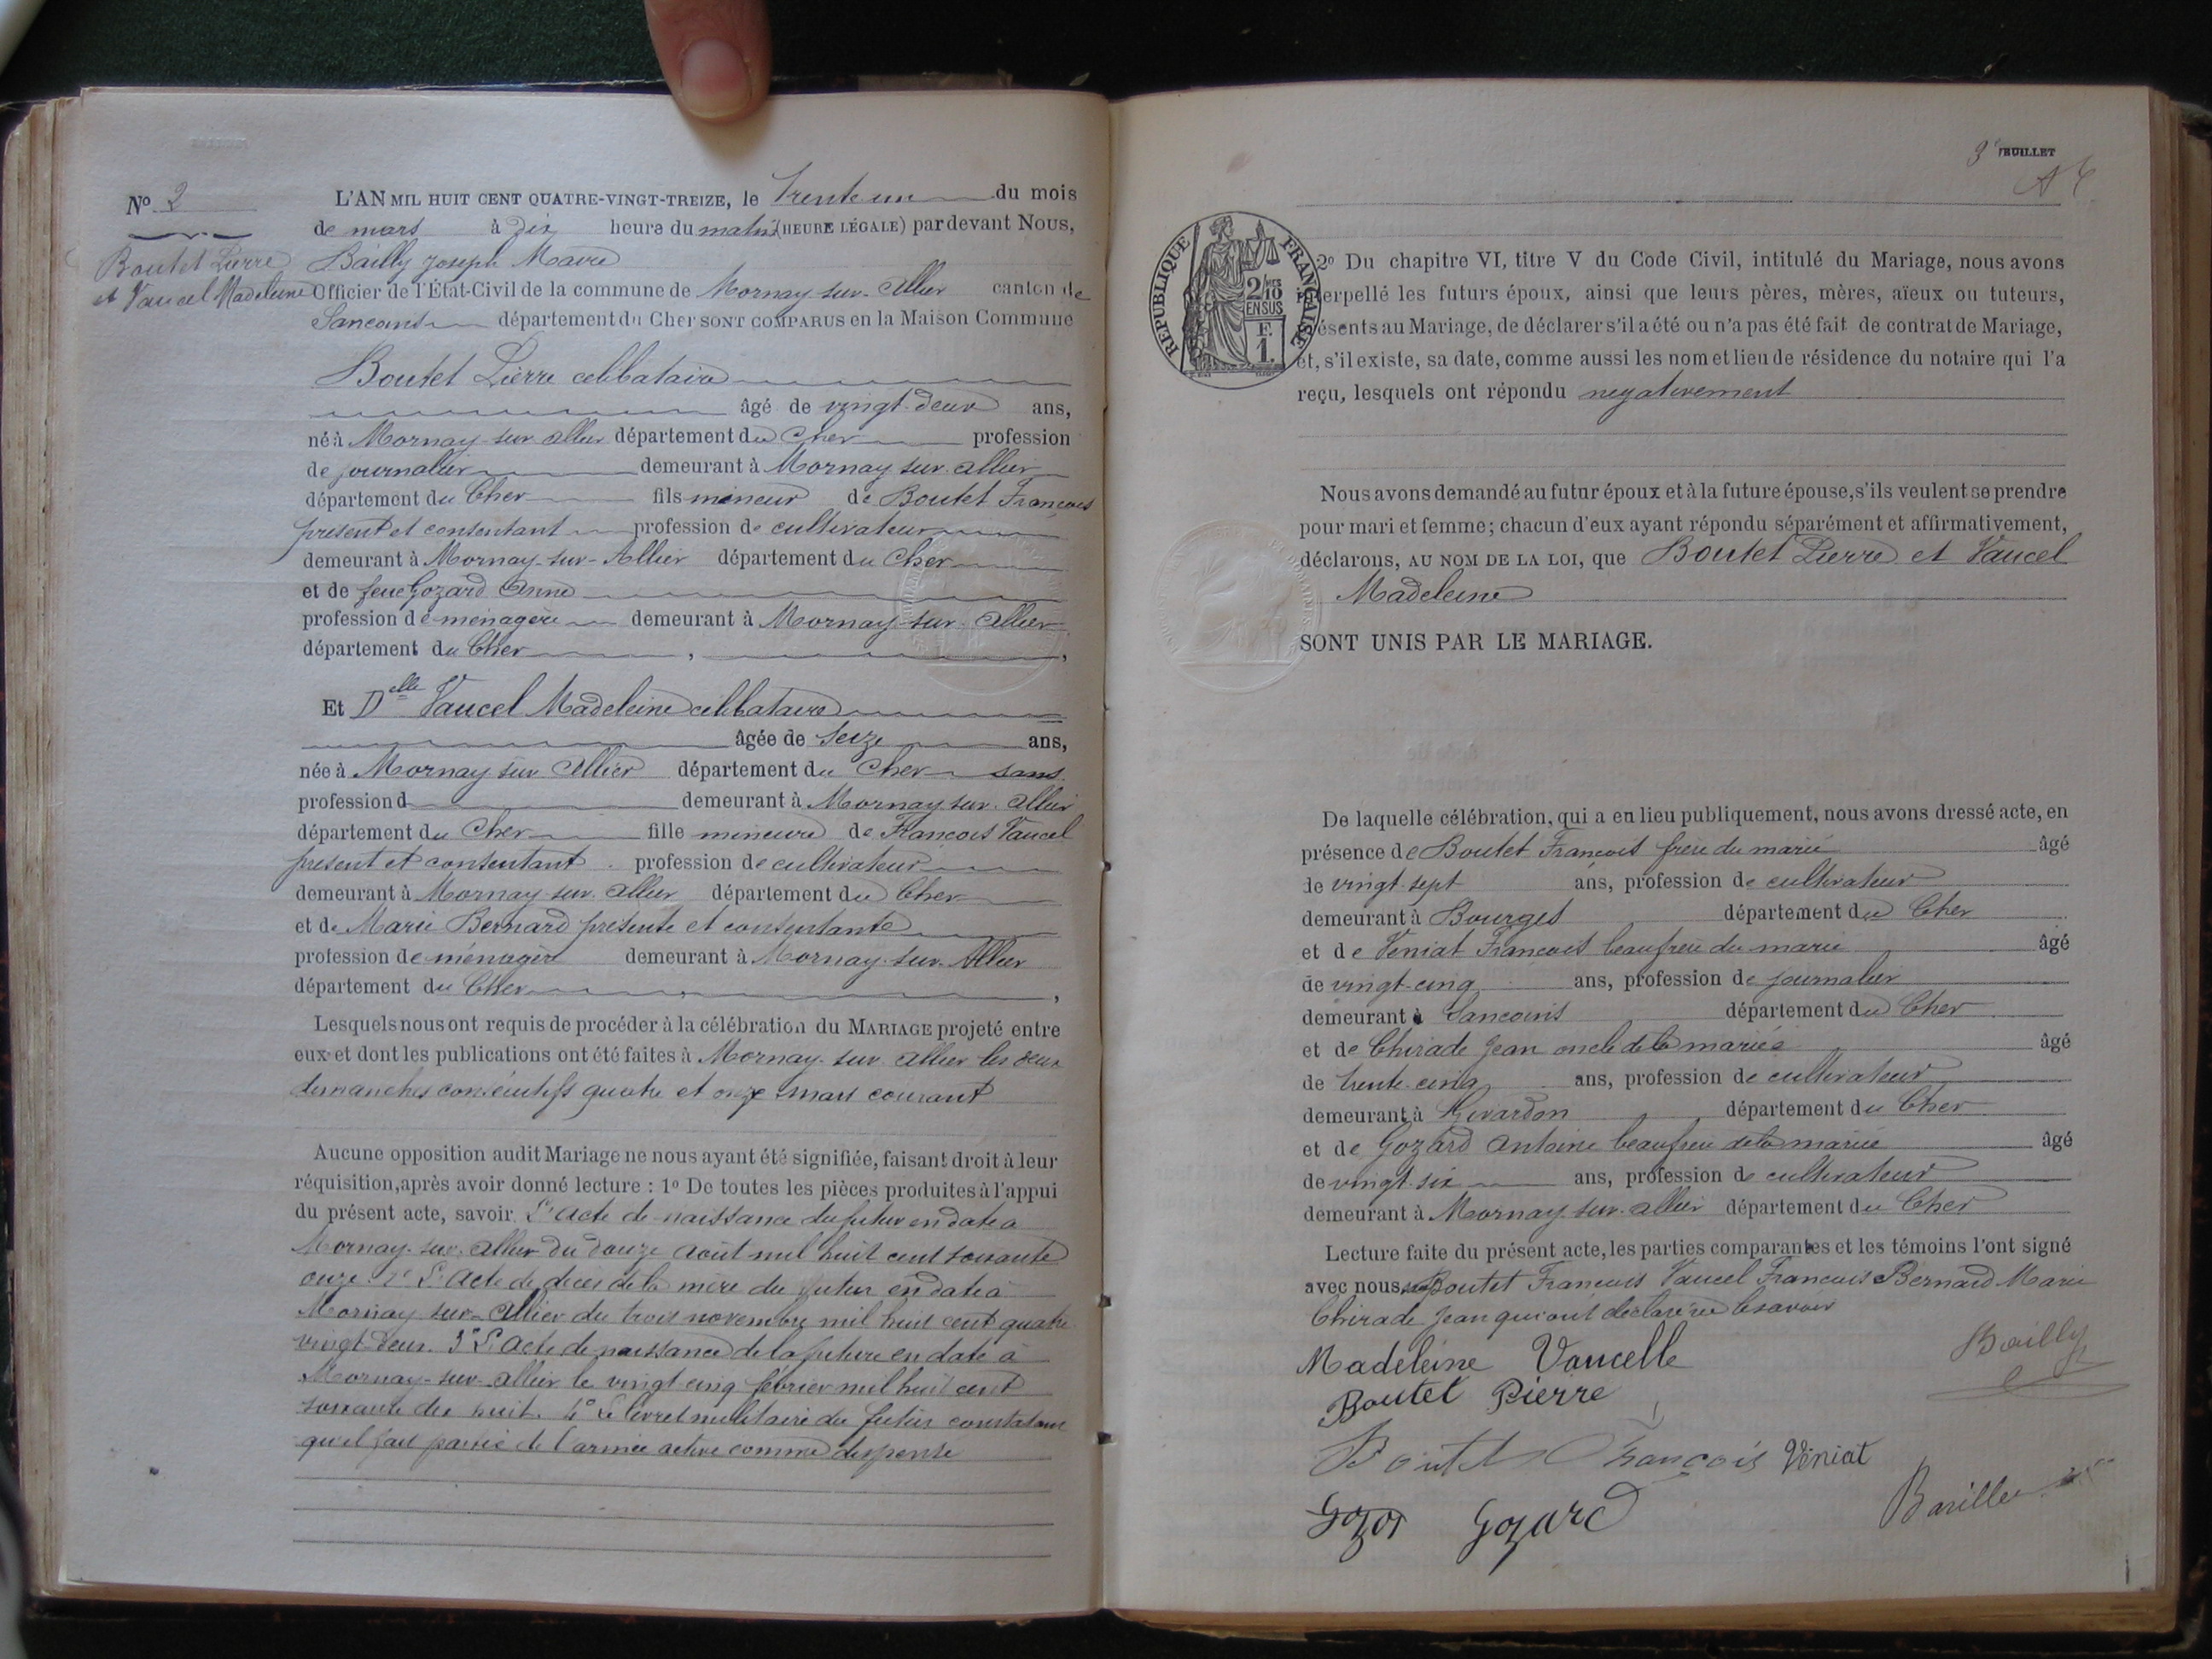 No 2
Boutet Pierre
et Vaucel Madeleine
L'AN MIL HUIT CENT QUATRE-VINGT-TREIZE, le trente un du mois
de mars à dix heure du matin (HEURE LÉGALE) par devant Nous,
Bailly Joseph Maire
Officier de l'État-Civil de la commune de Mornay sur Allier canton de
Sancoins département du Cher SONT COMPARUS en la Maison Commune
Boutet Pierre celibataire
âgé de vingt-deux ans,
né à Mornay sur Allier département du Cher profession
de journalier demeurant à Mornay sur Allier
département du Cher fils mineur de Boutet François
présent et consentant profession de cultivateur
demeurant à Mornay-sur-Allier département du Cher
et de feue Gozard Anne
profession de menagère demeurant à Mornay-sur-Allier
département du Cher ,
Et Delle Vaucel Madeleine celibataire
âgée de seize ans,
née à Mornay sur Allier département du Cher sans
profession d demeurant à Mornay sur Allier
département du Cher fille mineure de François Vaucel
présent et consentant profession de cultivateur
demeurant à Mornay-sur-Allier département du Cher
et de Marie Bernard présente et consentante
profession de ménagère demeurant à Mornay-sur-Allier
département du Cher ,
Lesquels nous ont requis de procéder à la célébration du MARIAGE projeté entre
eux et dont les publications ont été faites à Mornay-sur Allier les deux
dimanches consécutifs quatre et onze mars courant
Aucune opposition audit Mariage ne nous ayant été signifiée, faisant droit à leur
réquisition, après avoir donné lecture : 1o De toutes les pièces produites à l'appui
du présent acte, savoir L'acte de naissance du futur en date a
Mornay-sur-Allier du douze août mil huit cent soixante
onze. 2o L'Acte de décès de la mère du futur en date à
Mornay sur-Allier du trois novembre mil huit cent quatre
vingt-deux. 3o L'Acte de naissance de la future en date à
Mornay-sur-Allier le vingt-cinq février mil huit cent
soixante dix huit. 4o Le livret militaire du futur constatant
qu'il fait partie de l'armée active comme dispensé
3e FEUILLET
RÉPUBLIQUE FRANÇAISE
2/10 EN SUS
F. 1.
2o Du chapitre VI, titre V du Code Civil, intitulé du Mariage, nous avons
interpellé les futurs époux, ainsi que leurs pères, mères, aïeux ou tuteurs,
présents au Mariage, de déclarer s'il a été ou n'a pas été fait de contrat de Mariage,
et, s'il existe, sa date, comme aussi les nom et lieu de résidence du notaire qui l'a
reçu, lesquels ont répondu negativement
Nous avons demandé au futur époux et à la future épouse, s'ils veulent se prendre
pour mari et femme; chacun d'eux ayant répondu séparément et affirmativement,
déclarons, AU NOM DE LA LOI, que Boutet Pierre et Vaucel
Madeleine
SONT UNIS PAR LE MARIAGE.
De laquelle célébration, qui a eu lieu publiquement, nous avons dressé acte, en
présence de Boutet François frère du marié âgé
de vingt-sept ans, profession de cultivateur
demeurant à Bourges département du Cher
et de Veniat François beaufrère du marié âgé
de vingt-cinq ans, profession de journalier
demeurant à Sancoins département du Cher
et de Chirade Jean oncle de la mariée âgé
de trente-cinq ans, profession de cultivateur
demeurant à Givardon département du Cher
et de Gozard Antoine beaufrère de la mariée âgé
de vingt-six ans, profession de cultivateur
demeurant à Mornay-sur-Allier département du Cher
Lecture faite du présent acte, les parties comparantes et les témoins l'ont signé
avec nous Boutet François Vaucel François Bernard Marie
Chirade Jean qui ont déclaré ne le savoir
Madeleine Vaucelle
Bailly
Boutet Pierre
Boutet François Véniat
Gozard